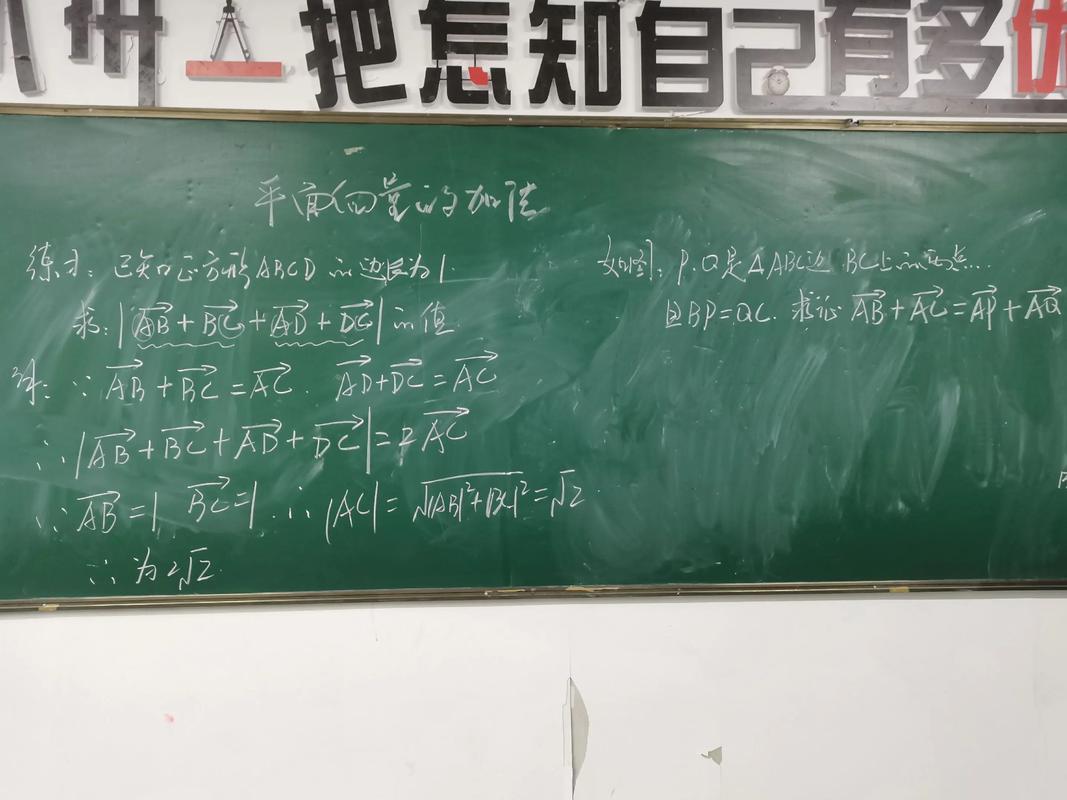 把怎知自己有多优
平面向量的加法
练习：已知正方形ABCD的边长为1.
求：|AB→+BC→+AD→+DC→|的值
解：∵AB→+BC→=AC→. AD→+DC→=AC→
∴|AB→+BC→+AD→+DC→|=2AC→
∵AB→=1 BC→=1.∴|AC|=√|AB|²+|BC|²=√2.
∴为2√2.
如图，P.Q是△ABC边BC上的两点..
且BP=QC.求证AB→+AC→=AP→+AQ→